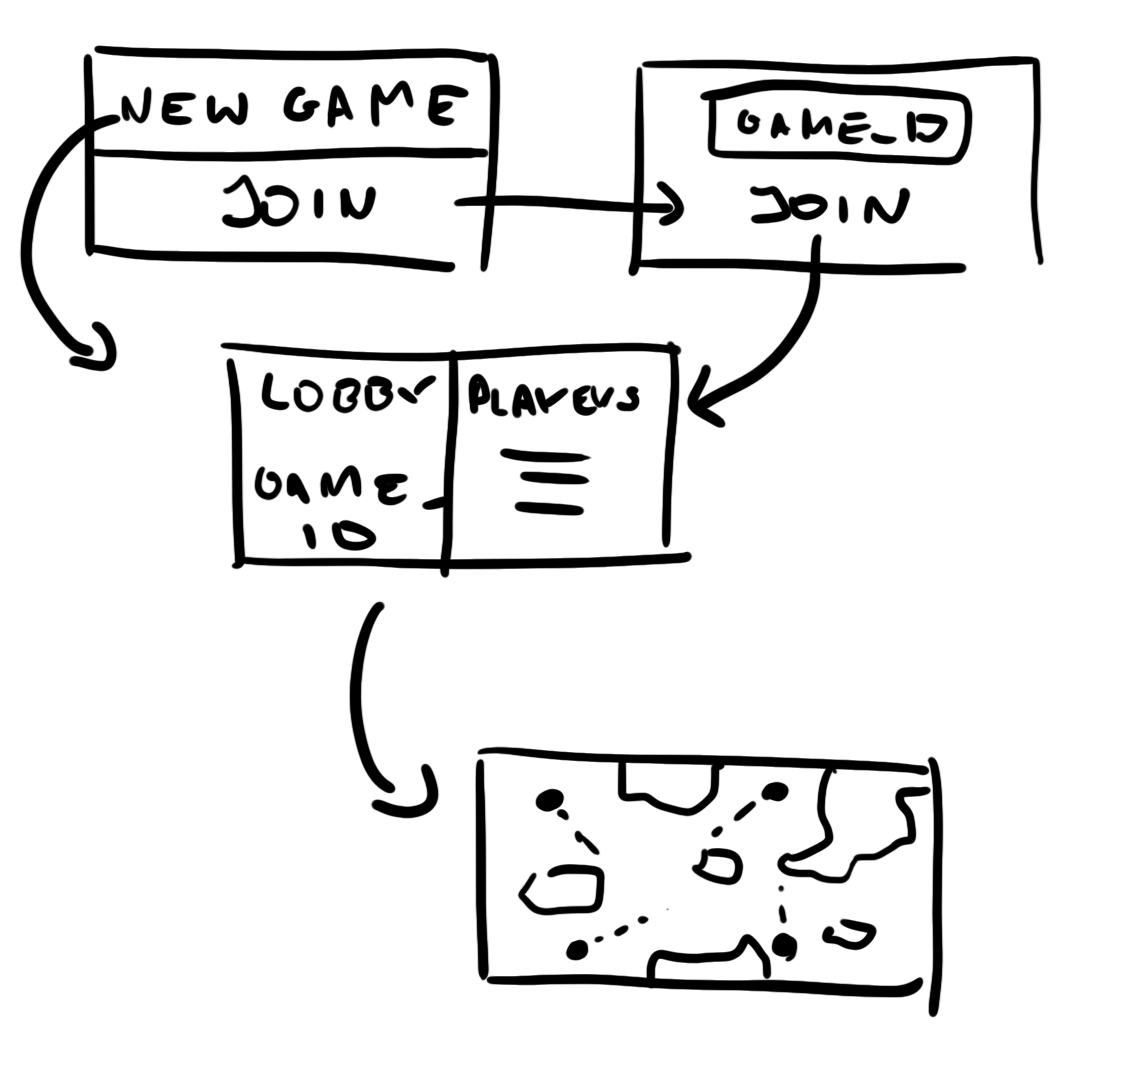 NEW GAME
JOIN
GAME_ID
JOIN
LOBBY
GAME_
ID
PLAYERS